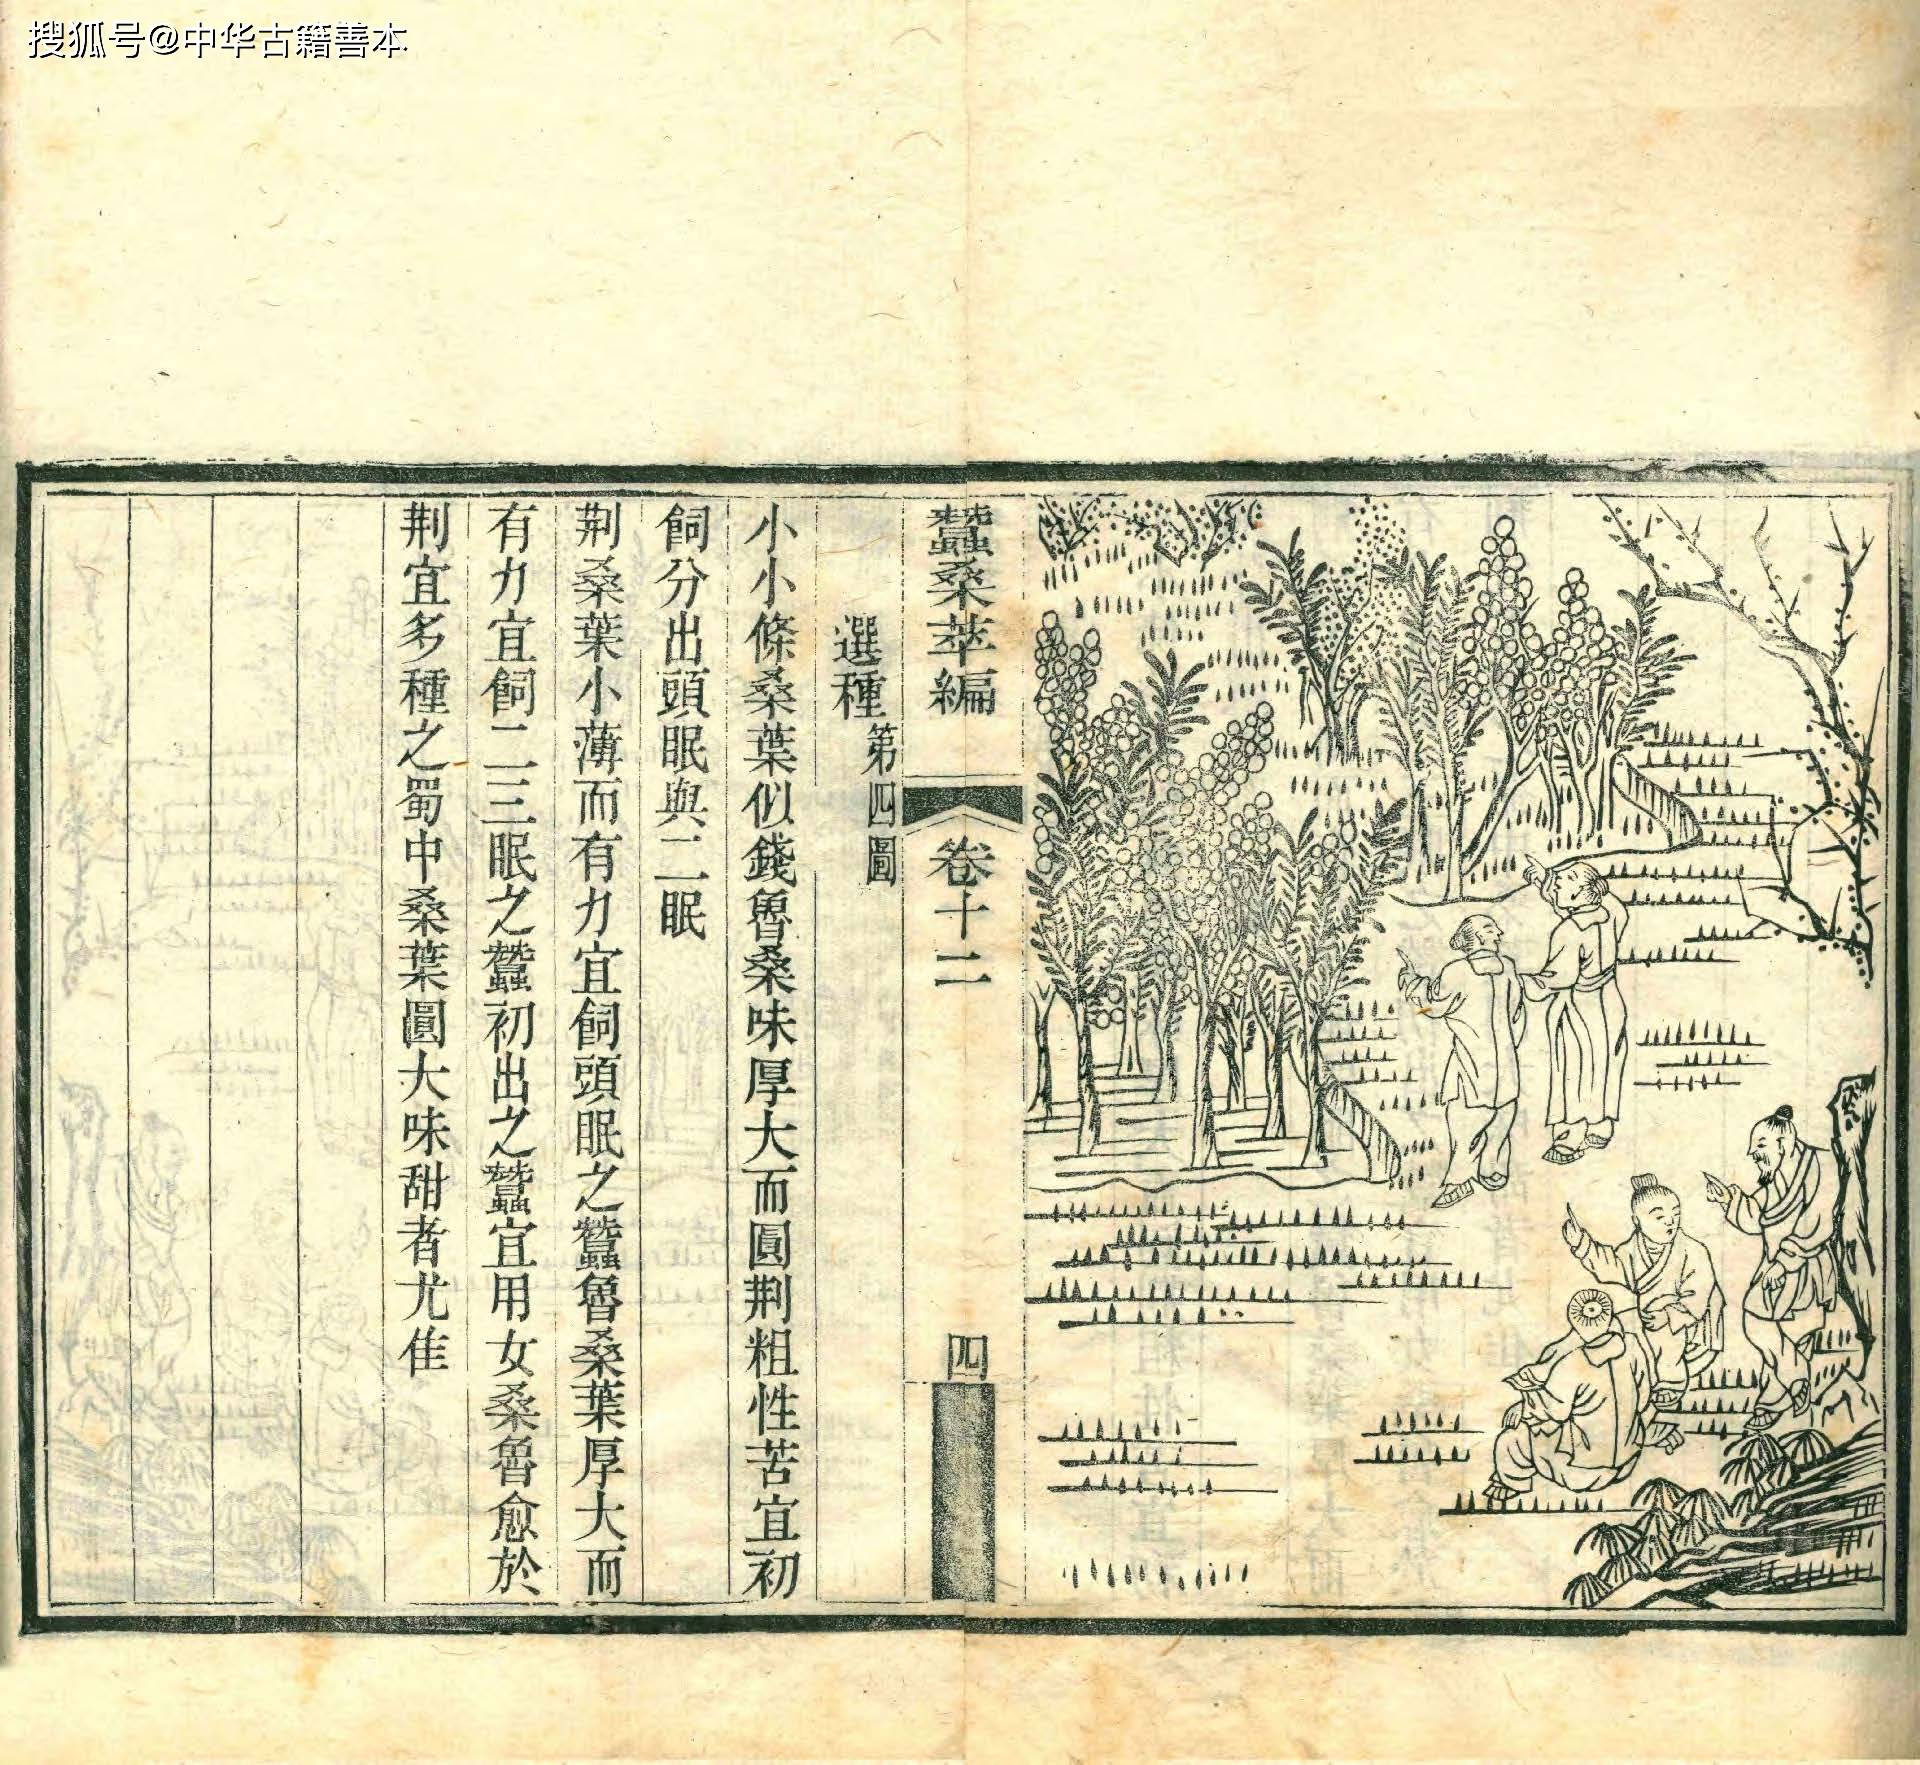 搜狐号@中华古籍善本
蠶桑萃編
卷十二
四
選種第四圖
小小條桑葉似錢魯桑味厚大而圓荆粗性苦宜初
飼分出頭眠與二眠
荆桑葉小薄而有力宜飼頭眠之蠶魯桑葉厚大而
有力宜飼二三眠之蠶初出之蠶宜用女桑魯愈於
荆宜多種之蜀中桑葉圓大味甜者尤佳